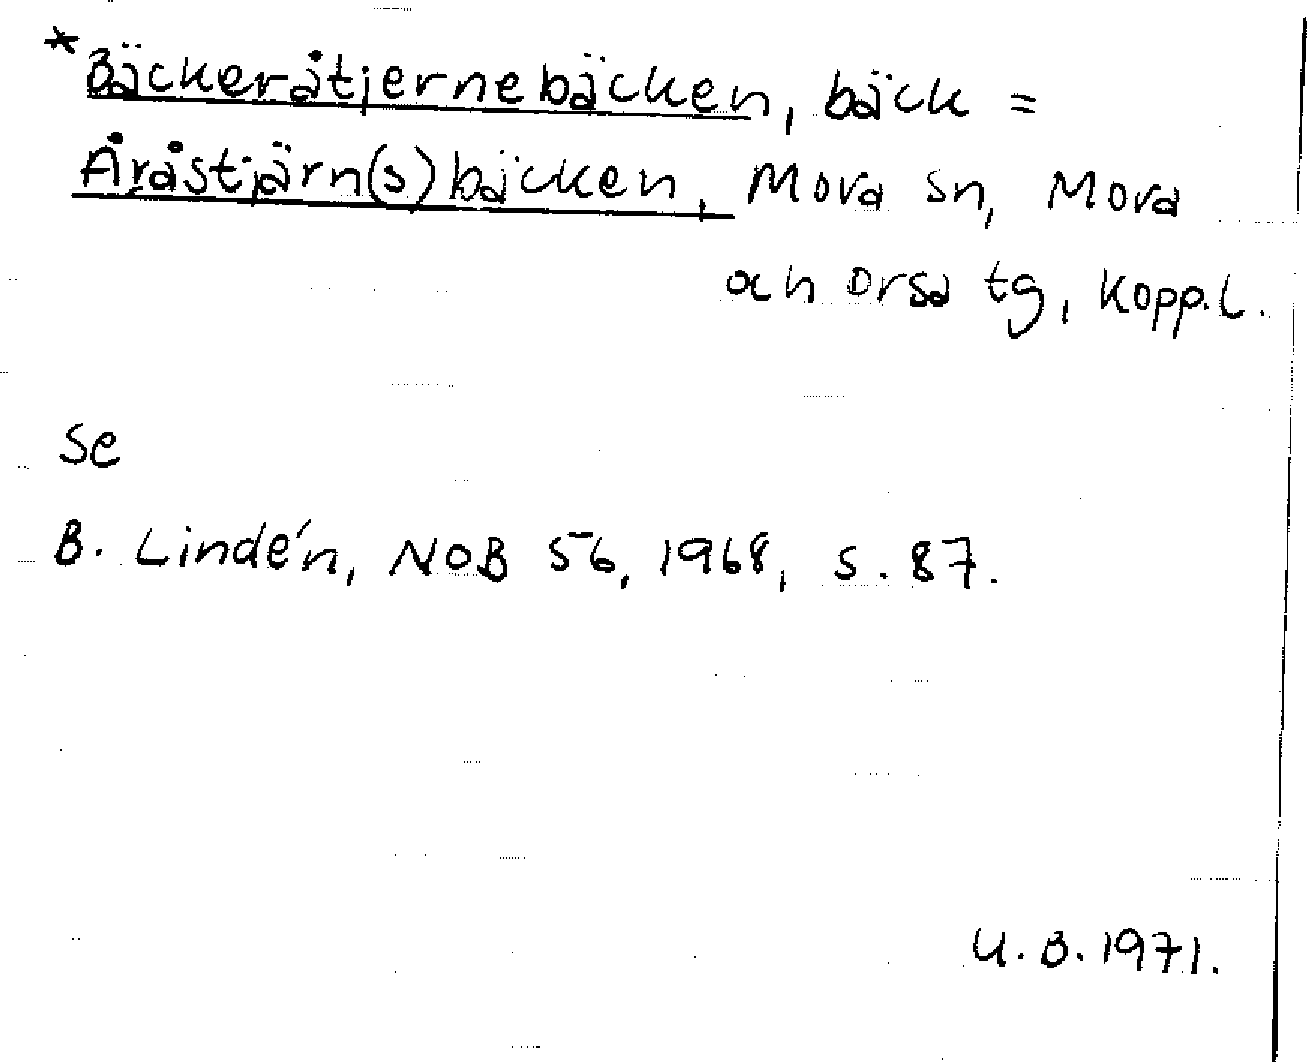 *Bäckeråtjernebäcken, bäck =
Åråstjärn(s)bäcken, Mora sn, Mora
och Orsa tg, Kopp.l.
se
B. Lindén, NOB 56, 1968, s. 87.
U.B. 1971.